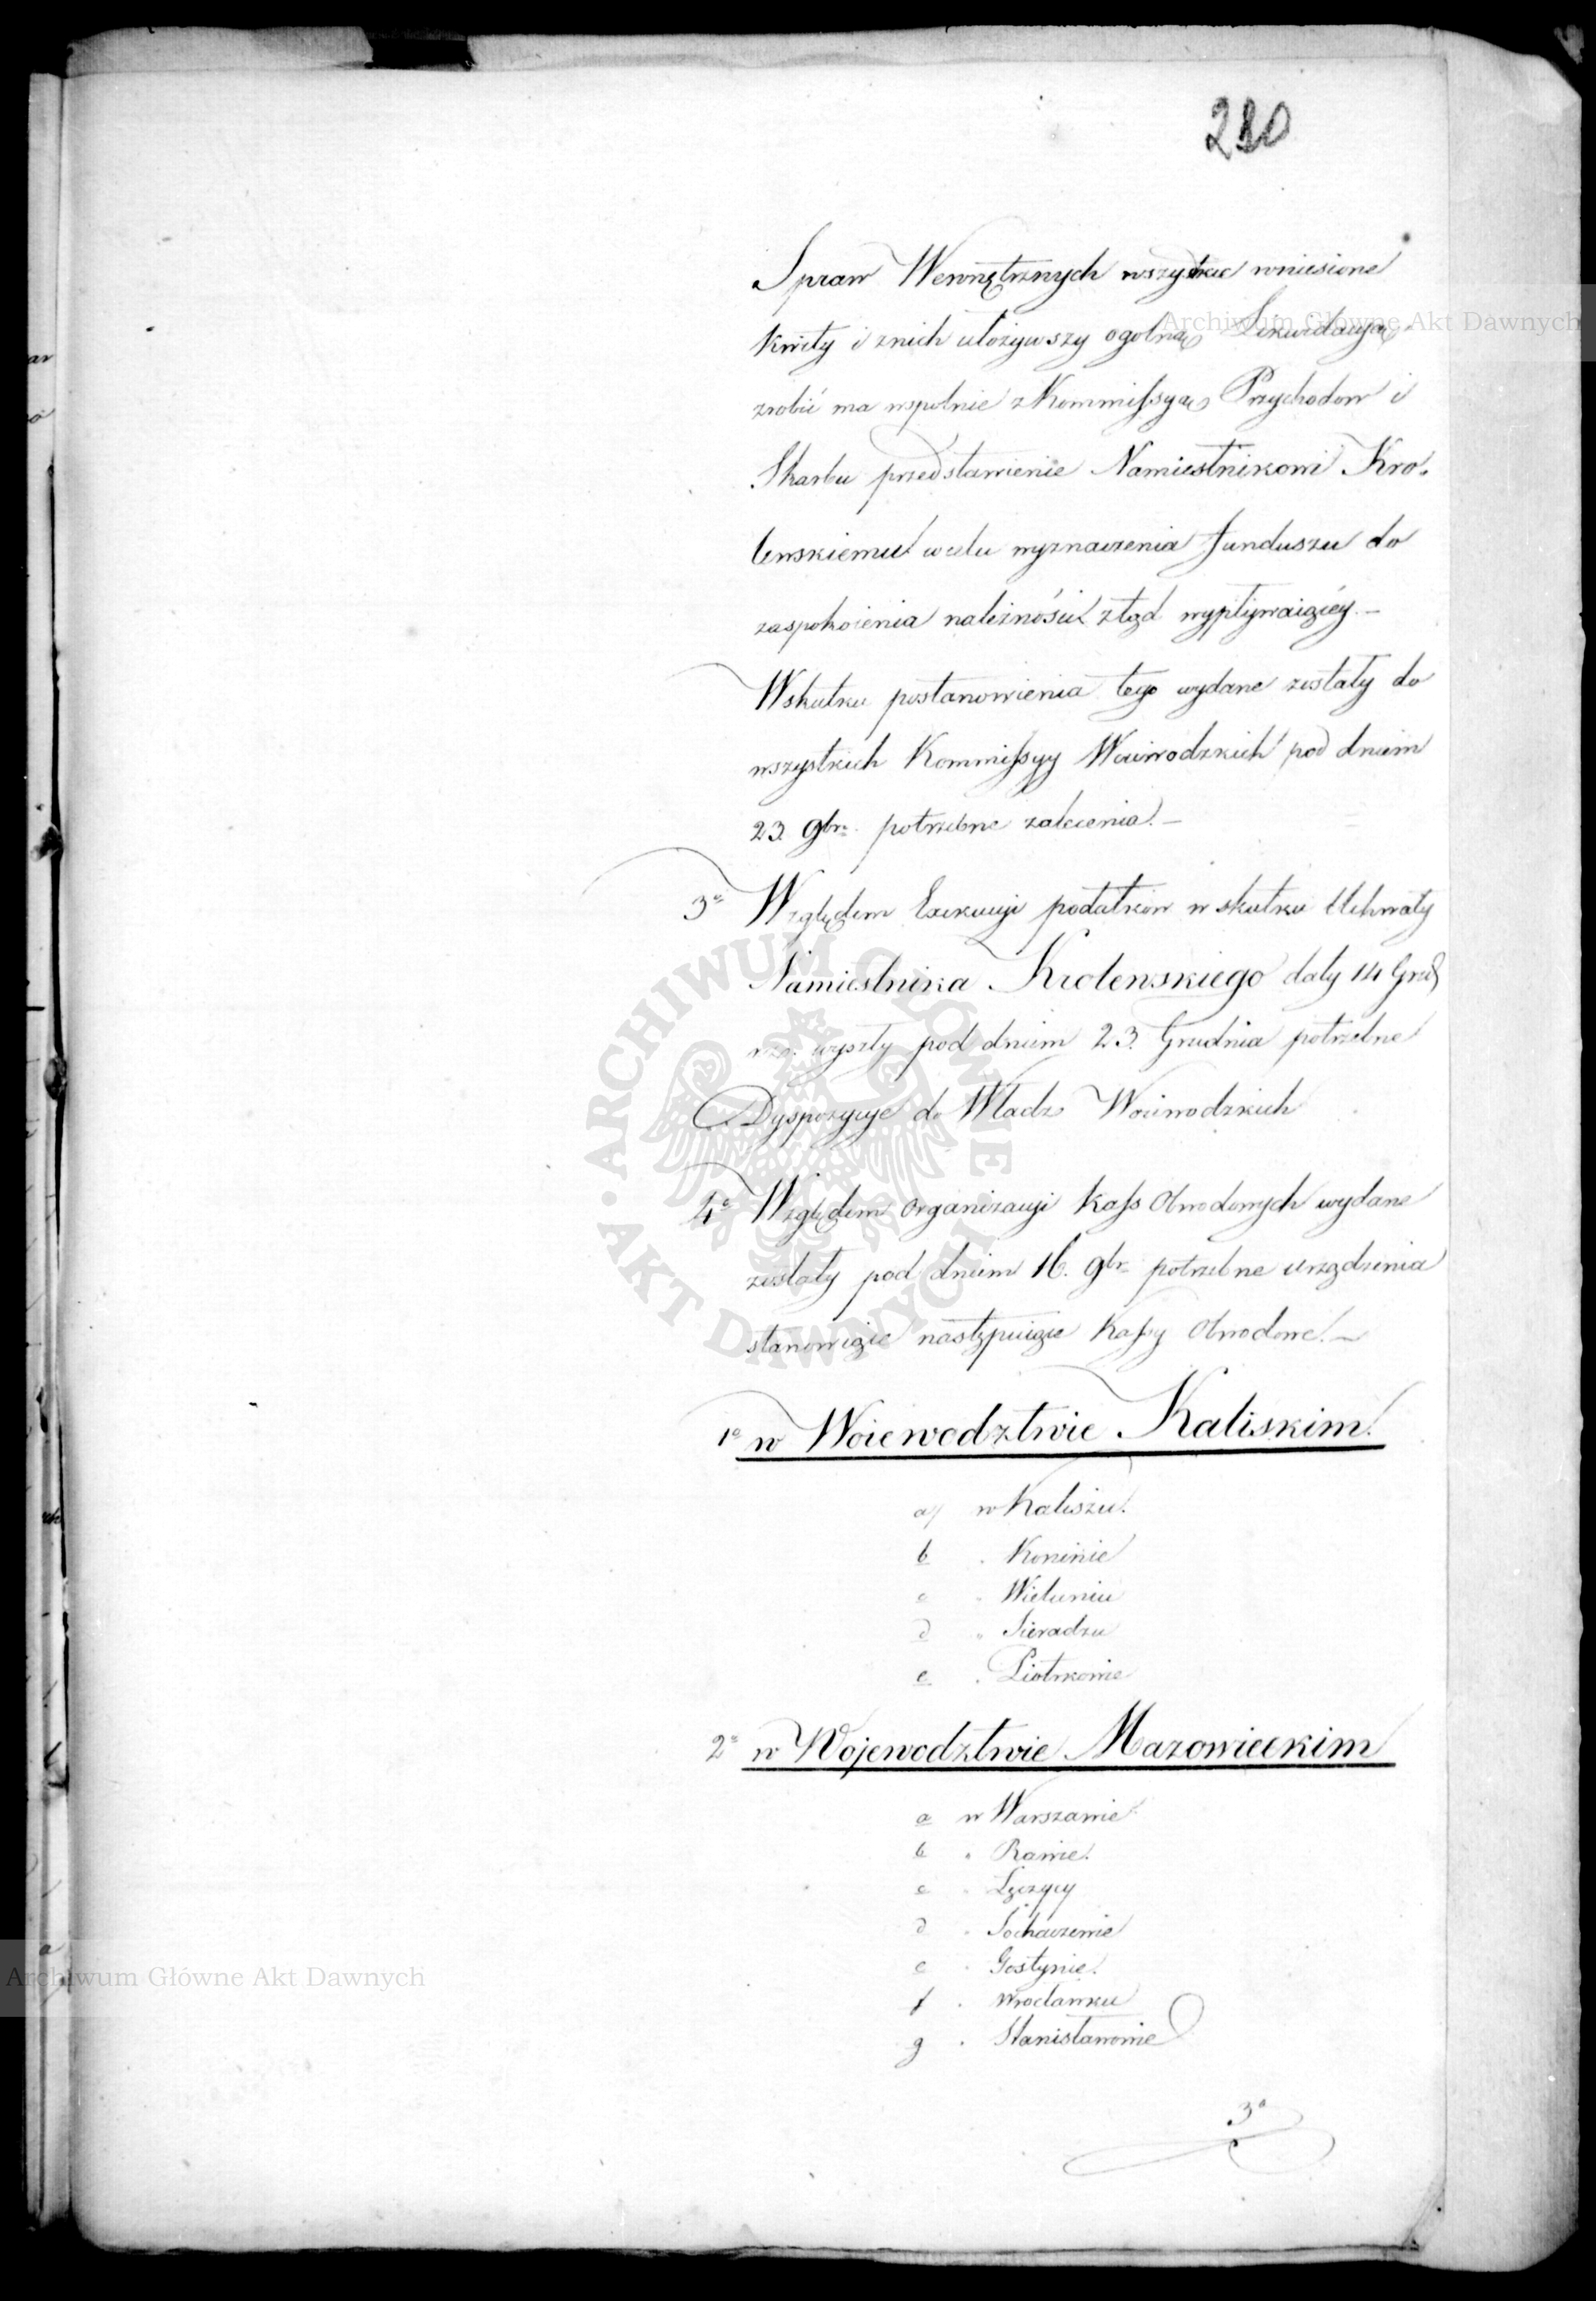 280
Spraw Wewnętrznych wszystkie wniesione
kwity i znich ułożywszy ogolną Likwidacyą
zrobić ma wspolnie z Kommissyą Przychodow i
Skarbu przedstawienie Namiestnikowi Kro-
lewskiemu w celu wyznaczenia funduszu do
zaspokoienia należności ztąd wypływaiącéy.—
Wskutku postanowienia tego wydane zostały do
wszystkich Kommissyy Woiewodzkich pod dniem
23. 9br. potrzebne zalecenia.—
3o Względem Exekucyi podatkow w skutku Uchwały
Namiestnika Krolewskiego daty 14 Grud
wyszły pod dniem 23. Grudnia potrzebne
Dyspozycye do Władz Woiewodzkich
4o Względem organizacyi Kass Obwodowych wydane
zostały pod dniem 16. 9br. potrzebne urządzenia
stanowiące następuiące Kassy Obwodowe.—
1o w Woiewodztwie Kaliskim.
a/ w Kaliszu.
b . Koninie
c " Wieluniu
d " Sieradzu
e . Piotrkowie
2o w Wojewodztwie Mazowieckim
a w Warszawie
b " Rawie.
c " Łęczycy
d " Sochaczewie
e " Gostynie.
f . Wrocławku
g . Stanisławowie
3o
Archiwum Główne Akt Dawnych
ARCHIWUM GŁÓWNE • AKT DAWNYCH •
Archiwum Główne Akt Dawnych